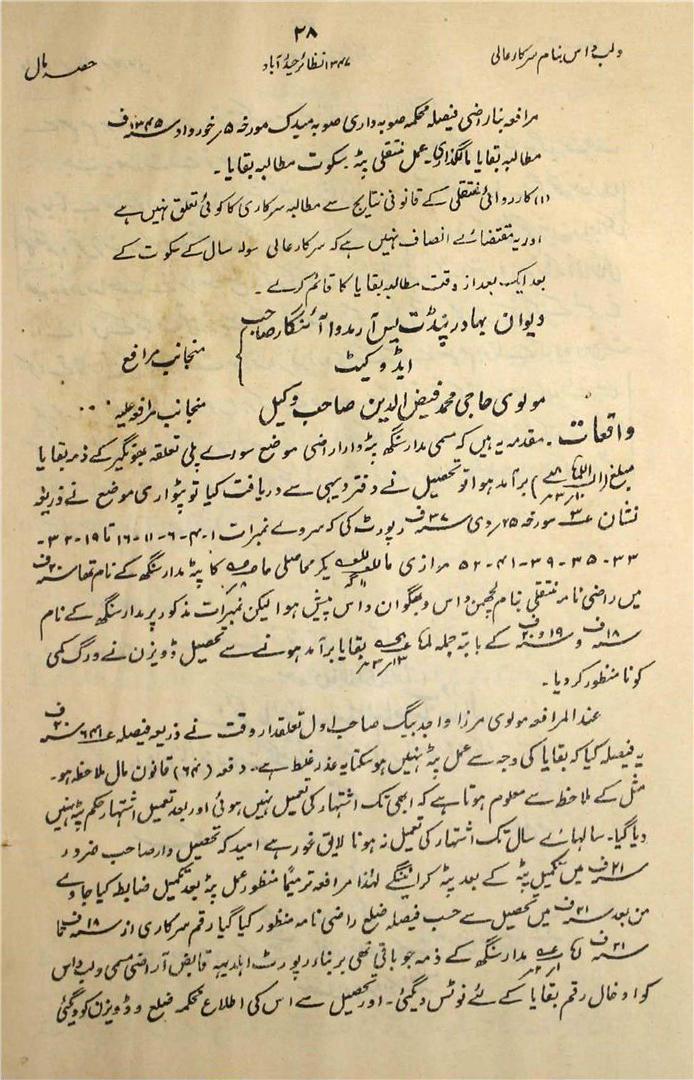 ۲۸
ولبداس بنام سرکارعالی
۱۳۴۷ نظائر حیدرآباد
حصہ مال
مرافعہ بناراضی فیصلہ محکمہ صوبہ داری صوبہ میدک مورخہ ۵؍ خورداد ۱۳۴۵ف
مطالبہ بقایا مالگذاری۔ عمل منتقلی پٹہ۔ سکوت مطالبہ بقایا۔
(۱) کارروائی منتقلی کے قانونی نتایج سے مطالبہ سرکاری کا کوئی تعلق نہیں ہے
اور یہ مقتضائے انصاف نہیں ہے کہ سرکار عالی سولہ سال کے سکوت کے
بعد ایک بعد از وقت مطالبہ بقایا کا قائم کرے۔
دیوان بہادر پنڈت یس آرمدوا آئنگار صاحب
ایڈوکیٹ
منجانب مرافع
مولوی حاجی محمد فیض الدین صاحب وکیل
منجانب مرافعہ علیہ ...
واقعات۔ مقدمہ یہ ہیں کہ مسمی مدار سنگھ پٹہ دار اراضی موضع سورے پلی تعلقہ بھونگیر کے ذمہ بقایا
مبلغ برآمد ہوا تو تحصیل نے دفتر دیہی سے دریافت کیا تو پٹواری موضع نے ذریعہ
نشان مورخہ ۲۵؍ دی ۳۷ف رپورٹ کی کہ سروے نمبرات ۱-۴-۶-۱۱-۱۶ تا ۱۹-۳۲-
۳۳-۳۵-۳۹-۴۱-۵۲ اراضی یکر محاصلی کا پٹہ مدار سنگھ کے نام تھا ۲۰ف
میں راضی نامہ منتقلی بنام لچھمن داس و بھگوان داس پیش ہوا لیکن نمبرات مذکور پر مدار سنگھ کے نام
۱۸ف و ۱۹ و ۲۰ف کے بابتہ جملہ بقایا برآمد ہونے سے تحصیل ڈویزن نے ورگ کمی
کو نامنظور کردیا۔
عند المرافعہ مولوی مرزا واجد بیگ صاحب اول تعلقدار وقت نے ذریعہ فیصلہ ۲۰ف
یہ فیصلہ کیا کہ بقایا کی وجہ سے عمل پٹہ نہیں ہوسکتا یہ عذر غلط ہے۔ دفعہ قانون مال ملاحظہ ہو۔
مثل کے ملاحظہ سے معلوم ہوتا ہے کہ ابھی تک اشتہار کی تعمیل نہیں ہوئی اور بعد تعمیل اشتہار حکم پٹہ نہیں
دیا گیا۔ سالہائے سال تک اشتہار کی تعمیل نہ ہونا لایق غور ہے امید کہ تحصیلدار صاحب ضرور
۲۱ف میں تکمیل پٹہ کے بعد پٹہ کرائینگے لہذا مرافعہ ترمیماً منظور عمل پٹہ بعد تکمیل ضابطہ کیا جاوے
من بعد ۲۱ف میں تحصیل سے حسب فیصلہ ضلع راضی نامہ منظور کیا گیا رقم سرکاری از ۱۸ف
۲۱ف مدار سنگھ کے ذمہ جو باقی تھی بر بناء رپورٹ اہلدیہہ قابض آراضی مسمی ولبداس
کو ادخال رقم بقایا کے لئے نوٹس دیگئی۔ اور تحصیل سے اس کی اطلاع محکمہ ضلع و ڈویزن کو دیگئی